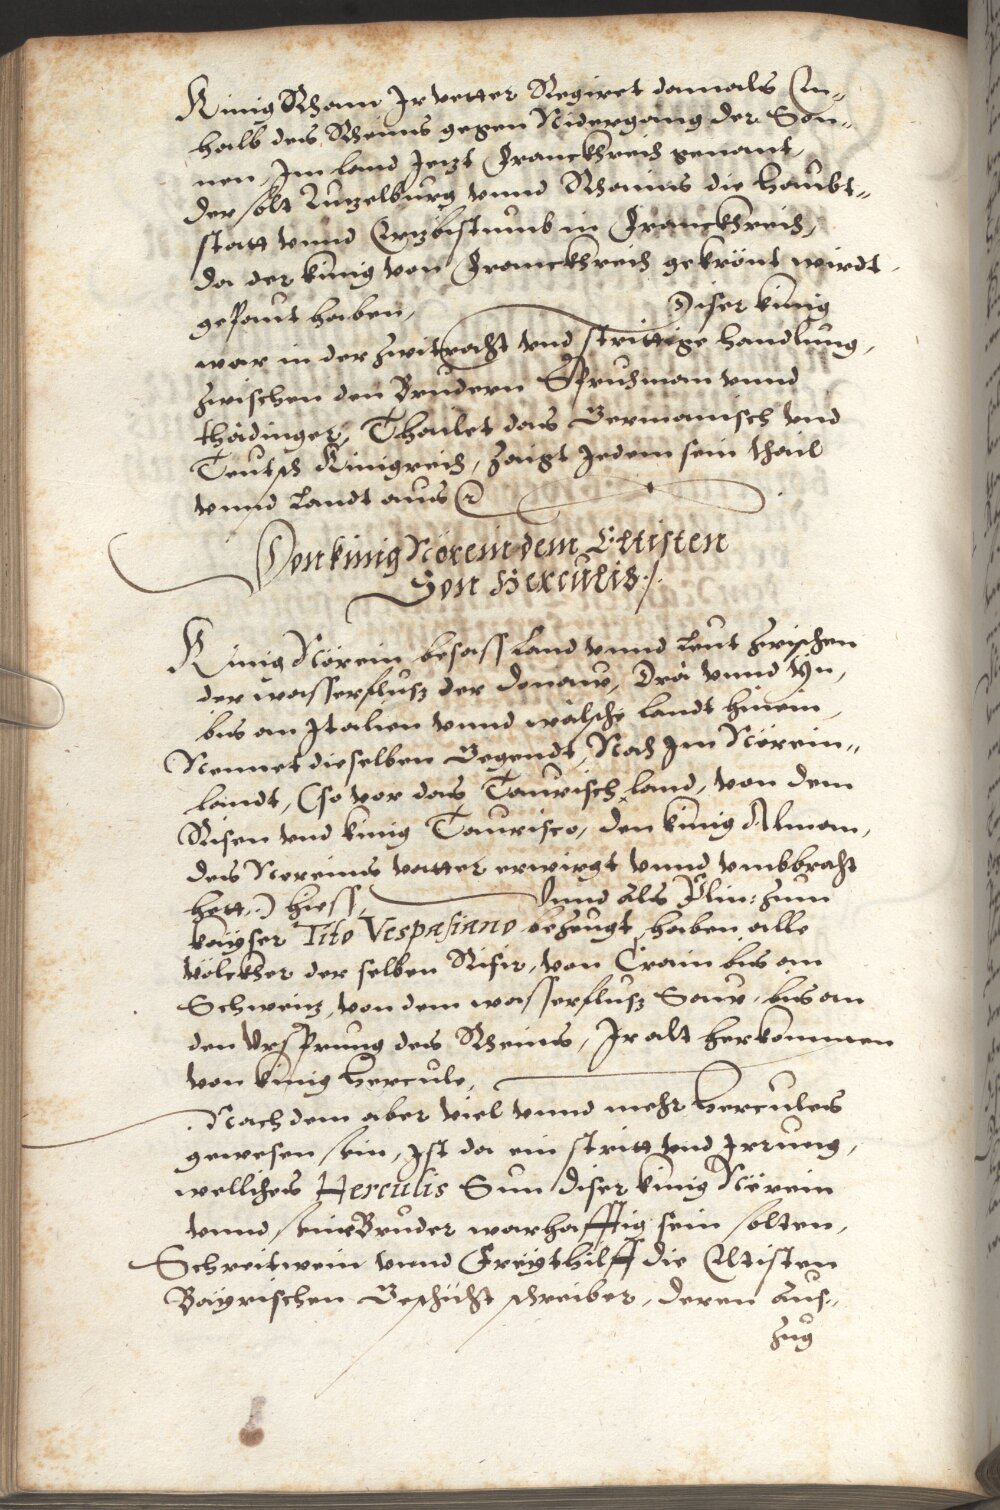 König Rhom Jr vetter Regiret damals En=
halb des Rheins gegen Nidergang der Son=
nen, Jm land Jetzt Franckhreich genant,
der solt Lutzelburg vnnd Rhains die haubt=
statt vnnd Ertzbistumb in Franckhreich,
da der künig von Franckhreich gekrönt wirdt,
gepaut haben, Diser künig
war in der zwitracht vnd strittige handlung,
zwischen den Brudern Spruchman vnnd
thädinger, Thailet das Germanisch vnd
Teutsch Künigreich, zaigt Jedem sein thail
vnnd landt aus
Von künig Nörein dem Eltisten
Son Herculis./.
Künig Nörein besass land vnnd leut zwischen
der wasserflusz der Donaw, Dra vnnd Yn,
bis an Jtalien vnnd wälsche landt hinein,
Nennet dieselben Gegendt, Nach Jm Nörein=
landt, (so vor das Taurisch land, von dem
Risen vnd künig Taurisco, den künig Alman,
des Noreins vatter erwirgt vnnd vmbbracht
hett.) hiess, Vnnd als Plin: zum
kayser Tito Vespasiano bezeugt, haben alle
völckher der selben Rifir, von Crain bis an
Schweitz, von dem wasserflusz Sauw, bis an
den Vrsprung des Rheins, Jr alt herkommen
von künig Hercule,
Nach dem aber viel vnnd mehr Hercules
gewesen sein, Jst da ein stritt vnd Jrrung,
welliches Herculis Sun diser künig Nörein
vnnd seine Bruder warhafftig sein solten,
Schreitwein vnnd Freythilff die Eltisten
Bayrischen Geschicht schreiber, deren aus=
zug